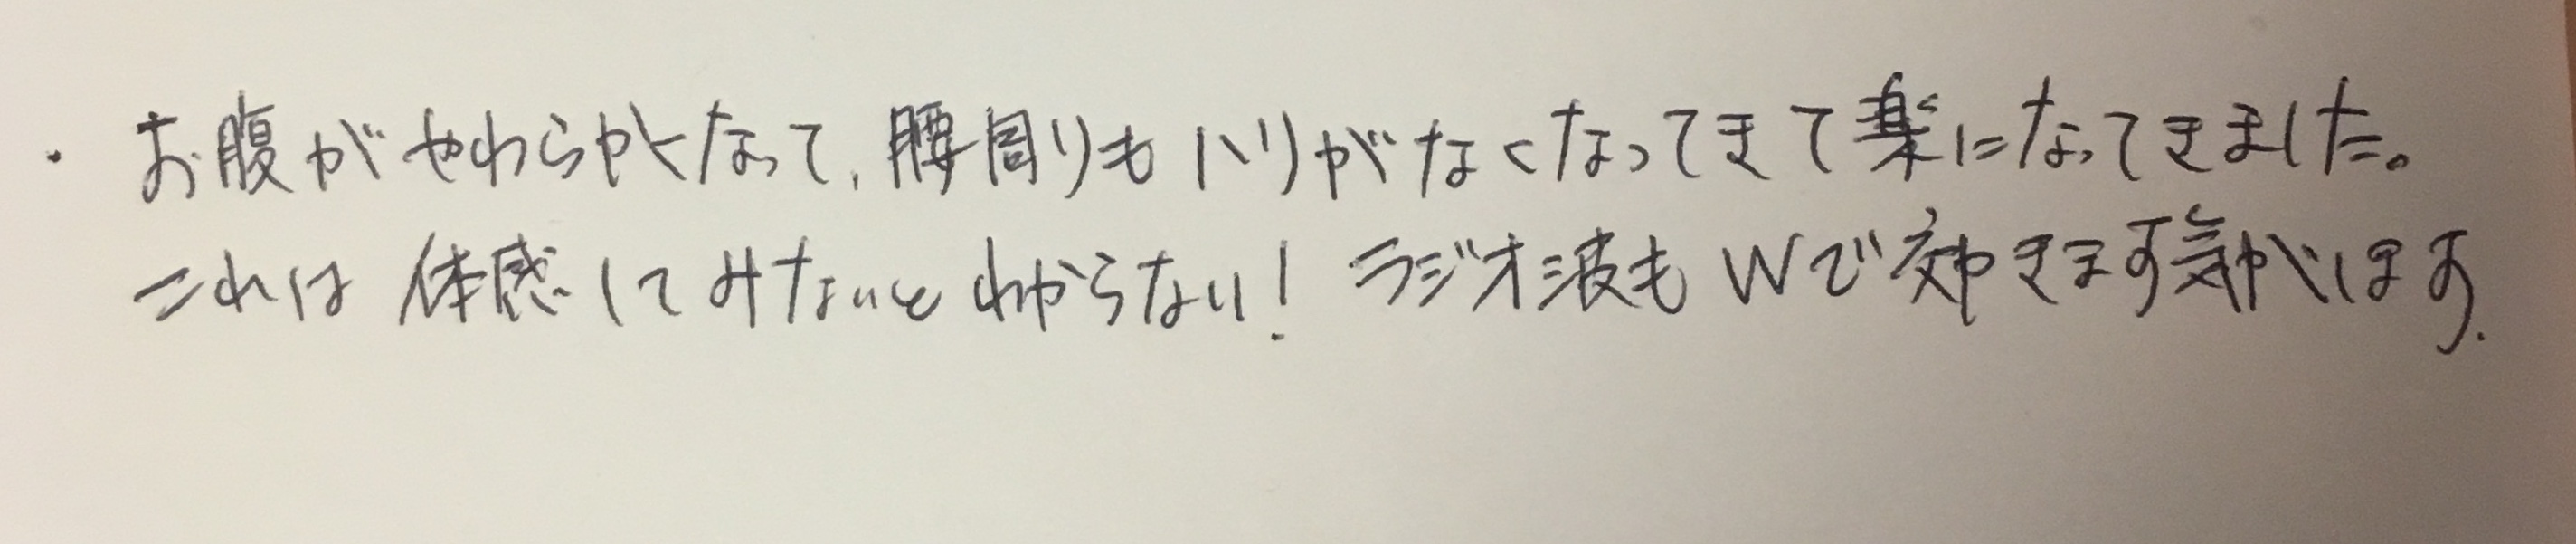 ・お腹がやわらかくなって、腰周りもハリがなくなってきて楽になってきました。
これは体感してみないとわからない！ラジオ波もWで効きます気がします.